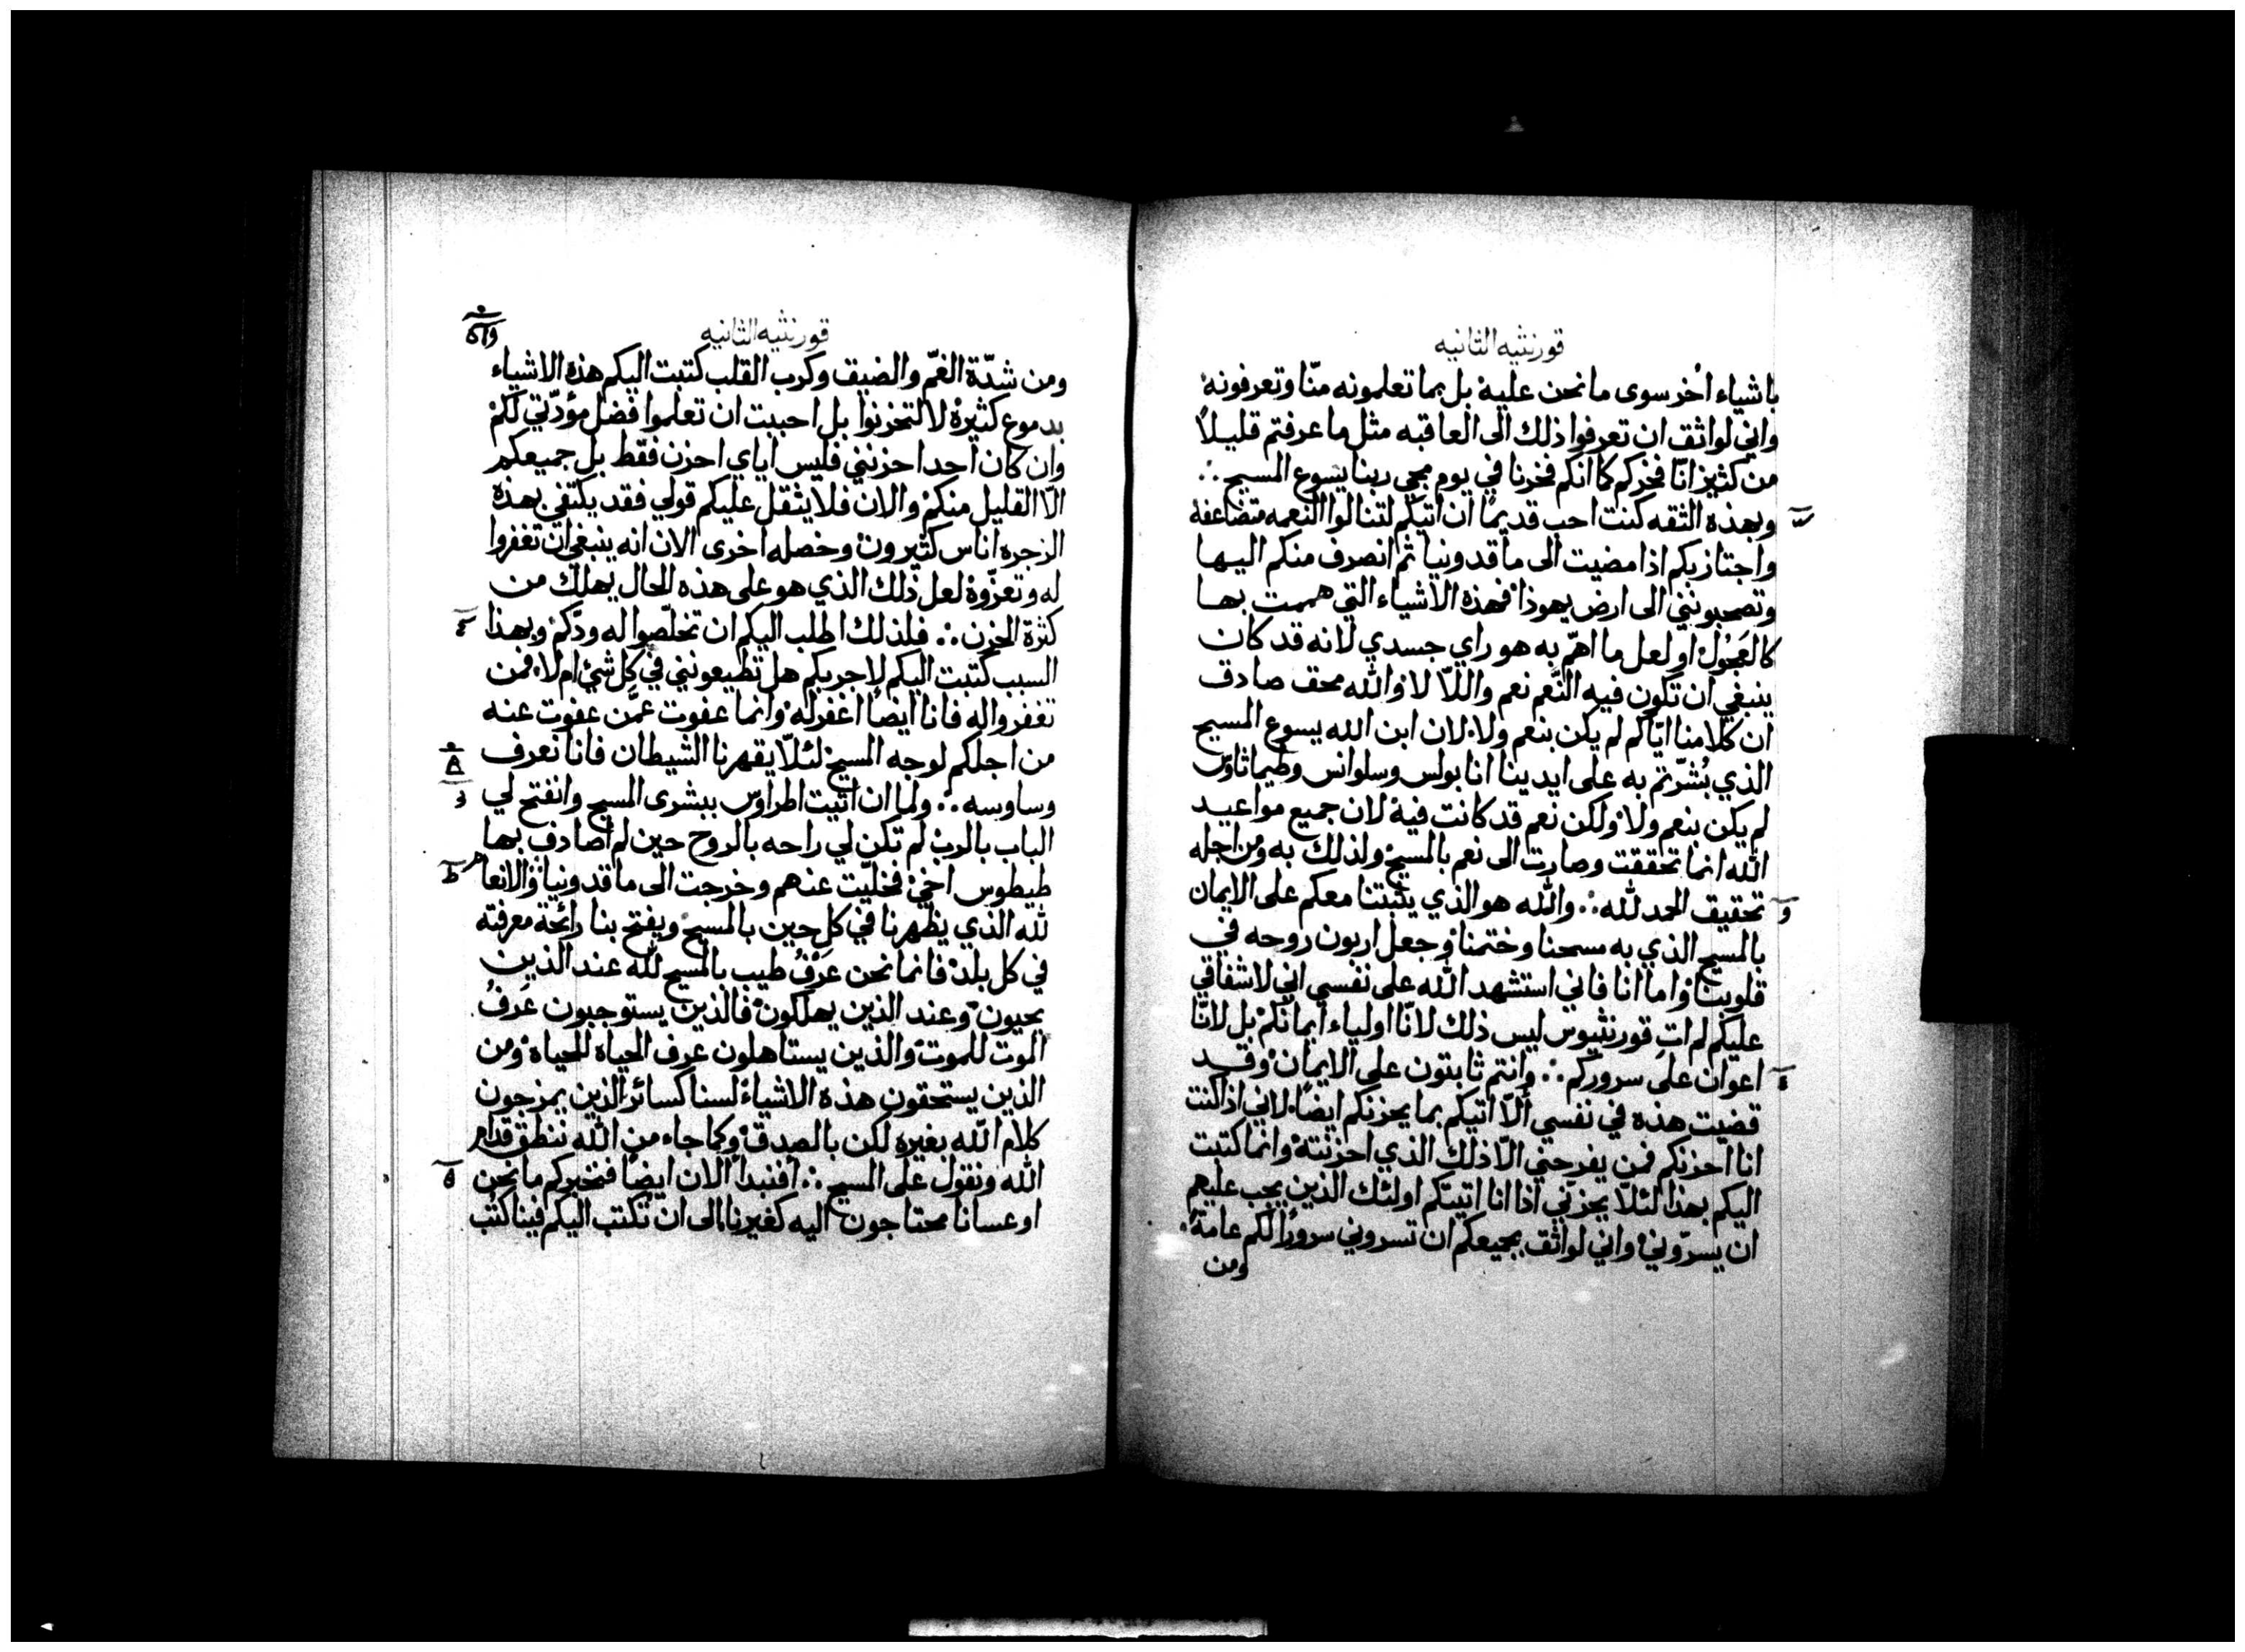 قورنثيه الثانيه
باشياء اُخر سوى ما نحن عليه بل بما تعلمونه منّا وتعرفونه
واني لواثق ان تعرفوا ذلك الى العاقبه مثل ما عرفتم قليلاً
من كثيرٍ انّا فخركم كما انكم فخرنا في يوم مجي ربنا يسوع المسيح ∴
وبهذه الثقه كنت احب قديمًا ان اتيكم لتنالوا النعمه متضاعفه
واجتاز بكم اذا مضيت الى ماقدونيا ثم انصرف منكم اليها
وتصحبونني الى ارض يهوذا فهذه الاشياء التي هممت بها
كالعَجُول او لعل ما اهمّ به هو راي جسدي لانه قد كان
ينبغي ان تكون فيه النَّعم نعم واللاّ لا والله محق صادق
ان كلامنا ايّاكم لم يكن بنعم ولا لان ابن الله يسوع المسيح
الذي بُشّرتم به على ايدينا انا بولس وسلوانس وطيماثاوس
لم يكن بنعم ولا ولكن نعم قد كانت فيه لان جميع مواعيد
الله انما تحققت وصارت الى نعم بالمسيح ولذلك به ومن اجله
تحقيق الحمد لله ∴ والله هو الذي يثبتنا معكم على الايمان
بالمسيح الذي به مسحنا وختمنا وجعل اربون روحه في
قلوبنا واما انا فاني استشهد الله على نفسي اني لاشفاقي
عليكم لم اتِ قورنثيوس ليس ذلك لانّا اولياء ايمانكم بل لانّا
اعوان على سروركم ∴ وانتم ثابتون على الايمان وقد
قضيت هذه في نفسي ألاّ اتيكم بما يحزنكم ايضًا لاني اذا كنت
انا احزنكم فمن يفرحني الاّ ذلك الذي احزنته وانما كتبت
اليكم بهذا لئلاّ يحزنني اذا انا اتيتكم اولئك الذين يجب عليهم
ان يسرّوني واني لواثق بجميعكم ان تسروني سرورًا لكم عامةً
ومن
قورنثيه الثانيه
ومن شدّة الغمّ والضيق وكرب القلب كتبت اليكم هذه الاشياء
بدموع كثيره لا لتحزنوا بل احببت ان تعلموا فضل مؤدّتي لكم
وان كان احد احزنني فليس اياي احزن فقط بل جميعكم
الاّ القليل منكم والان فلا يثقل عليكم قولي فقد يكتفي بهذه
الزجره اناس كثيرون وخصله اخرى الان انه ينبغي ان تغفروا
له وتعزّوه لعل ذلك الذي هو على هذه الحال يهلك من
كثرة الحزن ∴ فلذلك اطلب اليكم ان تخلّصوا له ودّكم وبهذا
السبب كتبت اليكم لاجربكم هل تطيعونني في كل شئ ام لا فمن
تغفروا له فانا ايضًا اغفر له وانما عفوت عمّن عفوت عنه
من اجلكم لوجه المسيح لئلاّ يقهرنا الشيطان فانا نعرف
وساوسه ∴ ولما ان اتيت اطراوس ببشرى المسيح وانفتح لي
الباب بالرب لم تكن لي راحه بالروح حين لم اصادف بها
طيطوس اخي فخليّت عنهم وخرجت الى ماقدونيا والانعام
لله الذي يظهرنا في كل حين بالمسيح ويفتح بنا رائحة معرفته
في كل بلد فانما نحن عَرْفٌ طيب بالمسيح لله عند الذين
يحيون وعند الذين يهلكون فالذين يستوجبون عَرفُ
الموت للموت والذين يستاهلون عرف الحياه للحياه ومن
الذين يستحقون هذه الاشياء لسنا كسائر الذين يمزجون
كلام الله بغيره لكن بالصدق وكما جاء من الله ننطق قدام
الله ونقول على المسيح ∴ أفنبدأ الان ايضًا فنخبركم ما نحن
او عسانا محتاجون اليه كغيرنا الى ان تكتب اليكم فينا كتب